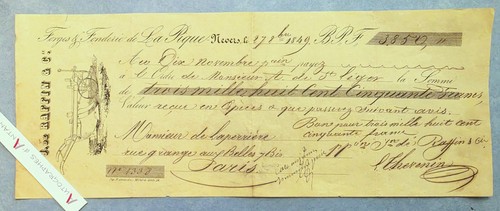 Forges & Fonderie de La Pique Nevers le 27 8bre 1849 B.P.F. 3850,"
Au Dix novembre prix payez
à l'Ordre de Monsieur A. de St Léger la Somme
de trois mille huit Cent Cinquante francs,
Valeur reçue en espèces & que passerez suivant avis.
Bon pour trois mille huit cent
cinquante francs
Monsieur de Laperrière
rue grange aux Belles
Paris
Pon Vve de Raffin & Cie
L Thevenin
No 1337
AUTOGRAPHES